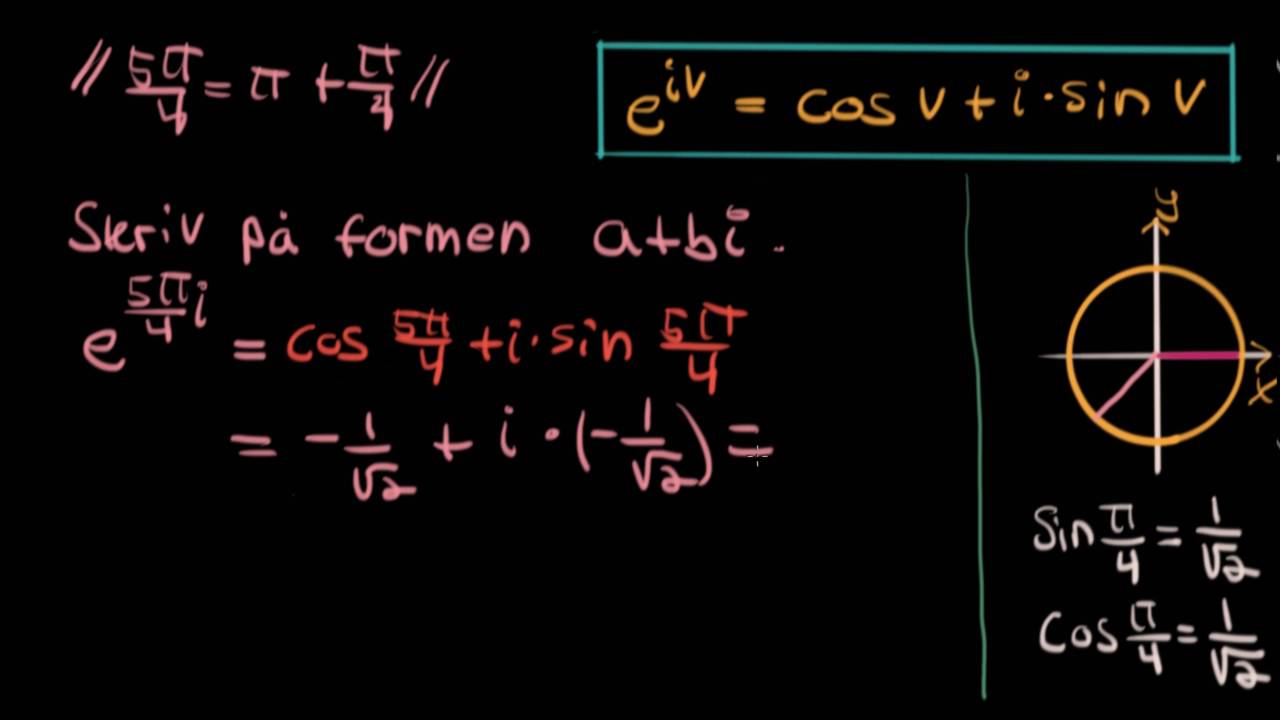 // 5π/4 = π + π/4 //
e^{iv} = cos v + i · sin v
Skriv på formen a+bi.
e^{5π/4 i} = cos 5π/4 + i · sin 5π/4
= -1/√2 + i · (-1/√2) =
y
x
Sin π/4 = 1/√2
Cos π/4 = 1/√2